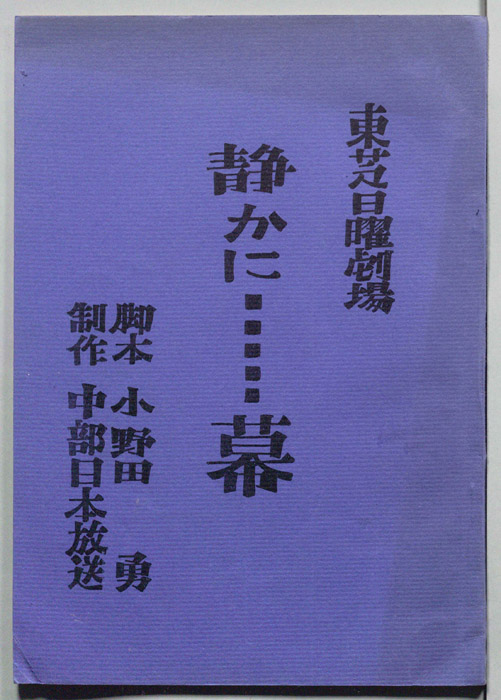 東芝日曜劇場
静かに……幕
脚本 小野田 勇
制作 中部日本放送